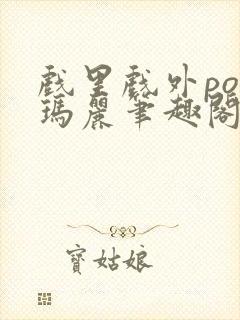 戲里戲外po
瑪麗筆趣閣
寶姑娘